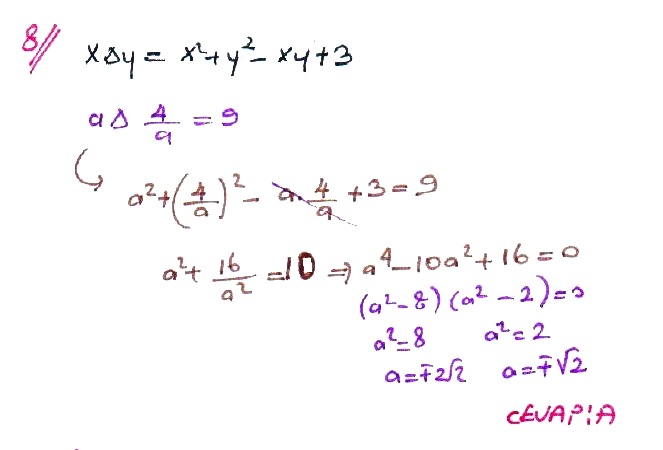 8// x△y = x²+y²-xy+3
a△ 4/a = 9
a²+(4/a)²- a.4/a +3=9
a²+ 16/a² =10 ⇒ a⁴-10a²+16=0
(a²-8)(a²-2)=0
a²=8 a²=2
a=∓2√2 a=∓√2
CEVAP:A